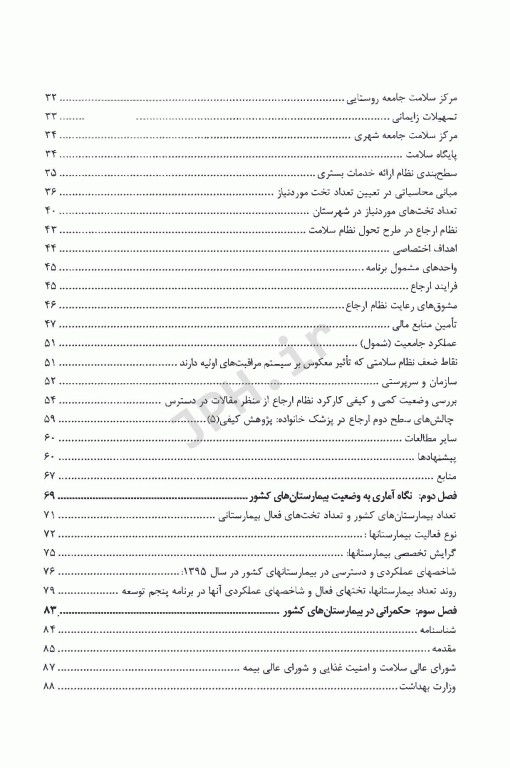 مرکز سلامت جامعه روستایی ........ ۳۲
تسهیلات زایمانی ........ ۳۳
مرکز سلامت جامعه شهری ........ ۳۴
پایگاه سلامت ........ ۳۴
سطح‌بندی نظام ارائه خدمات بستری ........ ۳۵
مبانی محاسباتی در تعیین تعداد تخت موردنیاز ........ ۳۶
تعداد تخت‌های موردنیاز در شهرستان ........ ۴۰
نظام ارجاع در طرح تحول نظام سلامت ........ ۴۳
اهداف اختصاصی ........ ۴۴
واحدهای مشمول برنامه ........ ۴۵
فرایند ارجاع ........ ۴۵
مشوق‌های رعایت نظام ارجاع ........ ۴۶
تأمین منابع مالی ........ ۴۷
عملکرد جامعیت (شمول) ........ ۵۱
نقاط ضعف نظام سلامتی که تأثیر معکوس بر سیستم مراقبت‌های اولیه دارند ........ ۵۱
سازمان و سرپرستی ........ ۵۲
بررسی وضعیت کمی و کیفی کارکرد نظام ارجاع از منظر مقالات در دسترس ........ ۵۴
چالش‌های سطح دوم ارجاع در پزشک خانواده: پژوهش کیفی(۵) ........ ۵۹
سایر مطالعات ........ ۶۰
پیشنهادها ........ ۶۰
منابع ........ ۶۷
فصل دوم: نگاه آماری به وضعیت بیمارستان‌های کشور ........ ۶۹
تعداد بیمارستان‌های کشور و تعداد تخت‌های فعال بیمارستانی ........ ۷۱
نوع فعالیت بیمارستانها : ........ ۷۲
گرایش تخصصی بیمارستانها: ........ ۷۵
شاخصهای عملکردی و دسترسی در بیمارستانهای کشور در سال ۱۳۹۵: ........ ۷۶
روند تعداد بیمارستانها، تختهای فعال و شاخصهای عملکردی آنها در برنامه پنجم توسعه ........ ۷۹
فصل سوم: حکمرانی در بیمارستان‌های کشور ........ ۸۳
شناسنامه ........ ۸۴
مقدمه ........ ۸۵
شورای عالی سلامت و امنیت غذایی و شورای عالی بیمه ........ ۸۷
وزارت بهداشت ........ ۸۸
JPH.ir